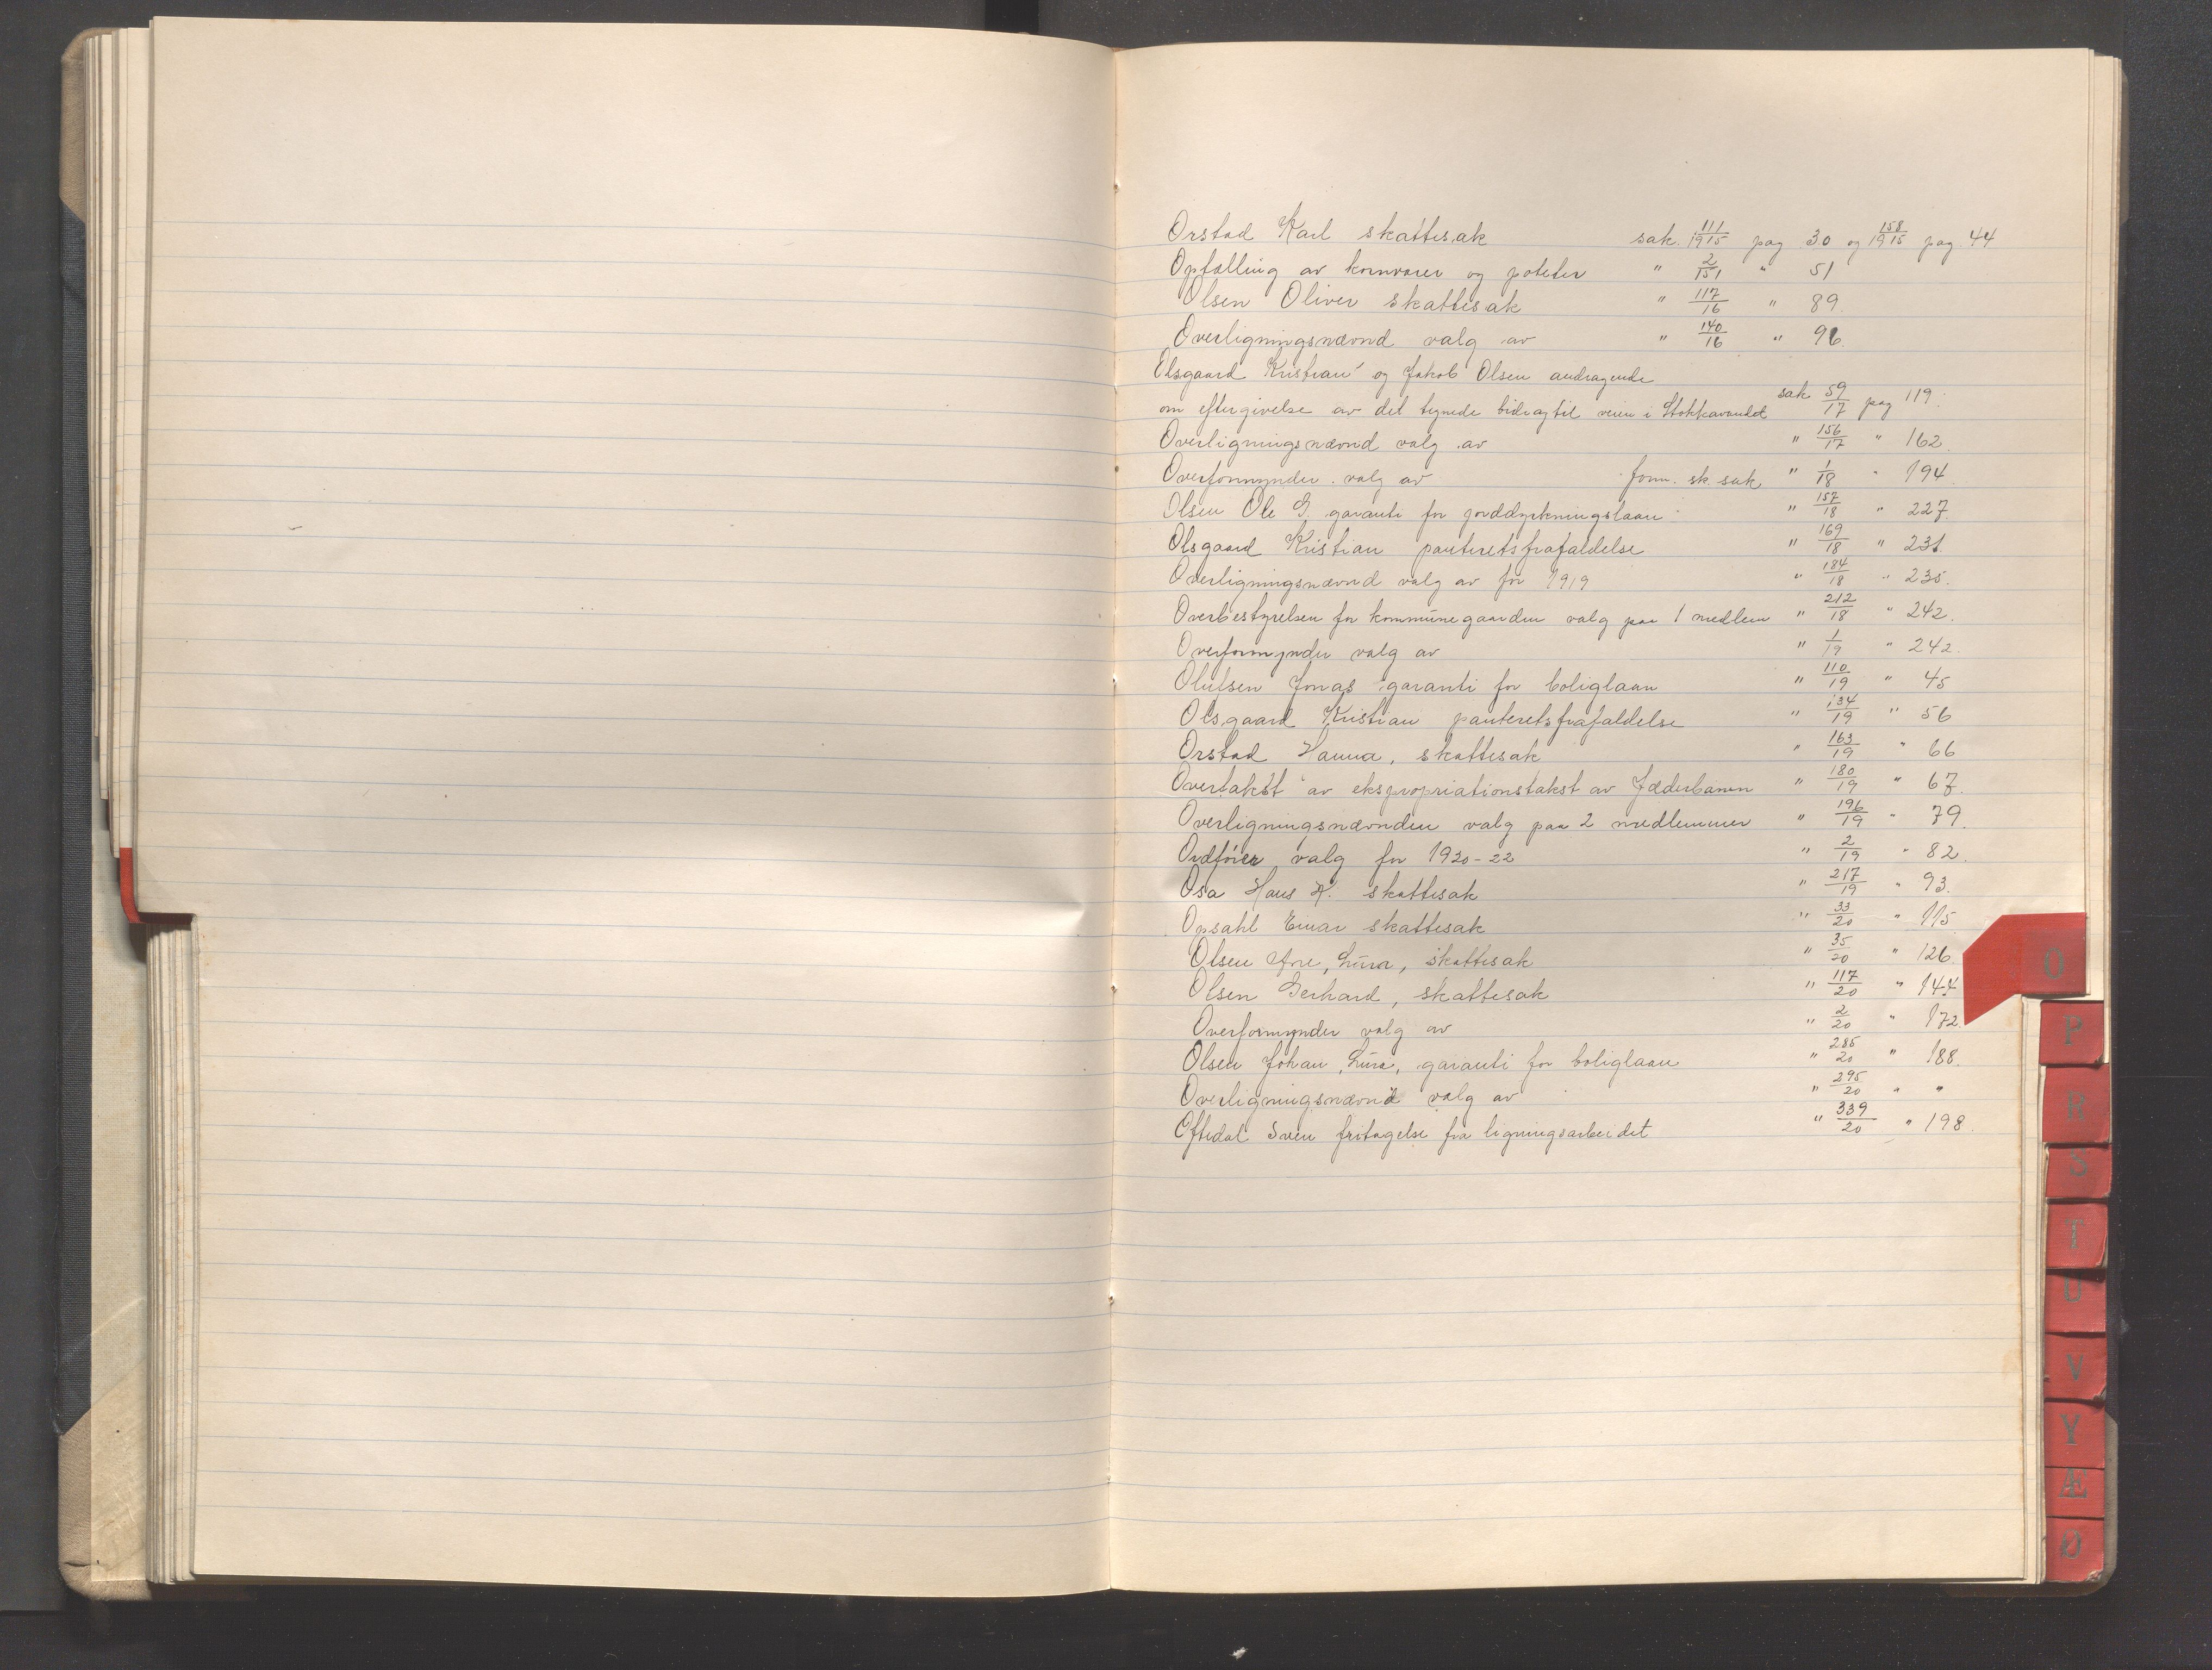 Orstad Karl skattesak sak 111/1915 pag 30 og 158/1915 pag. 44
Optælling av kornvarer og poteter " 2/151 " 51
Olsen Oliver skattesak " 117/16 " 89.
Overligningsnævnd valg av " 140/16 " 96.
Olsgaard Kristian og Jakob Olsen andragende
om eftergivelse av det tegnede bidrag til veien i Stokkavandet sak 59/17 pag 119.
Overligningsnævnd valg av " 156/17 " 162.
Overformynder valg av form. sk. sak " 1/18 " 194.
Olsen Ole G. garanti for jorddyrkningslaan " 157/18 " 227.
Olsgaard Kristian panteretsfrafaldelse " 169/18 " 231.
Overligningsnævnd valg av for 1919 " 184/18 " 235.
Overbestyrelsen for kommunegaarden valg paa 1 medlem " 212/18 " 242.
Overformynder valg av " 1/19 " 242.
Olufsen Jonas garanti for boliglaan " 110/19 " 45
Olsgaard Kristian panteretsfrafaldelse " 134/19 " 56
Orstad Hanna, skattesak " 163/19 " 66
Overtakst av ekspropriationstakst av Jæderbanen " 180/19 " 67.
Overligningsnævnden valg paa 2 medlemmer " 196/19 " 79.
Ordfører valg for 1920-22 " 2/19 " 82.
Osa Hans H. skattesak " 217/19 " 93.
Opsahl Einar skattesak " 33/20 " 115.
Olsen Are, Lura, skattesak " 35/20 " 126.
Olsen Gerhard, skattesak " 117/20 " 144
Overformynder valg av " 2/20 " 172.
Olsen Johan, Lura, garanti for boliglaan " 285/20 " 188.
Overligningsnævnd valg av " 295/20 " "
Oftedal Sven fritagelse fra ligningsarbeidet " 339/20 " 198.
O
P
R
S
T
U
V
Y
Æ
Ø